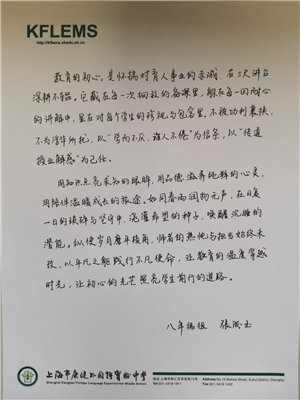 KFLEMS
http://kflems.xhedu.sh.cn
教育的初心，是怀揣对育人事业的赤诚，在三尺讲台
深耕不辍。它藏在每一次细致的备课里，融在每一回耐心
的讲解中，显在对每个学生的珍视与包容里。不被功利裹挟，
不为浮华所扰，以“学而不厌，诲人不倦”为信条，以“传道
授业解惑”为己任。
用知识点亮求知的眼眸，用品德滋养纯粹的心灵，
用陪伴温暖成长的旅途。如同春雨润物无声，在日复
一日的琐碎与坚守中，浇灌希望的种子，唤醒沉睡的
潜能。纵使岁月磨平棱角，师者的热忱与担当始终未
改，以平凡之躯践行不凡使命，让教育的温度穿越
时光，让初心的光芒照亮学生前行的道路。
八年级组 张
上海市康健外国语实验中学
Shanghai Kangjian Foreign Language Experimental Middle School